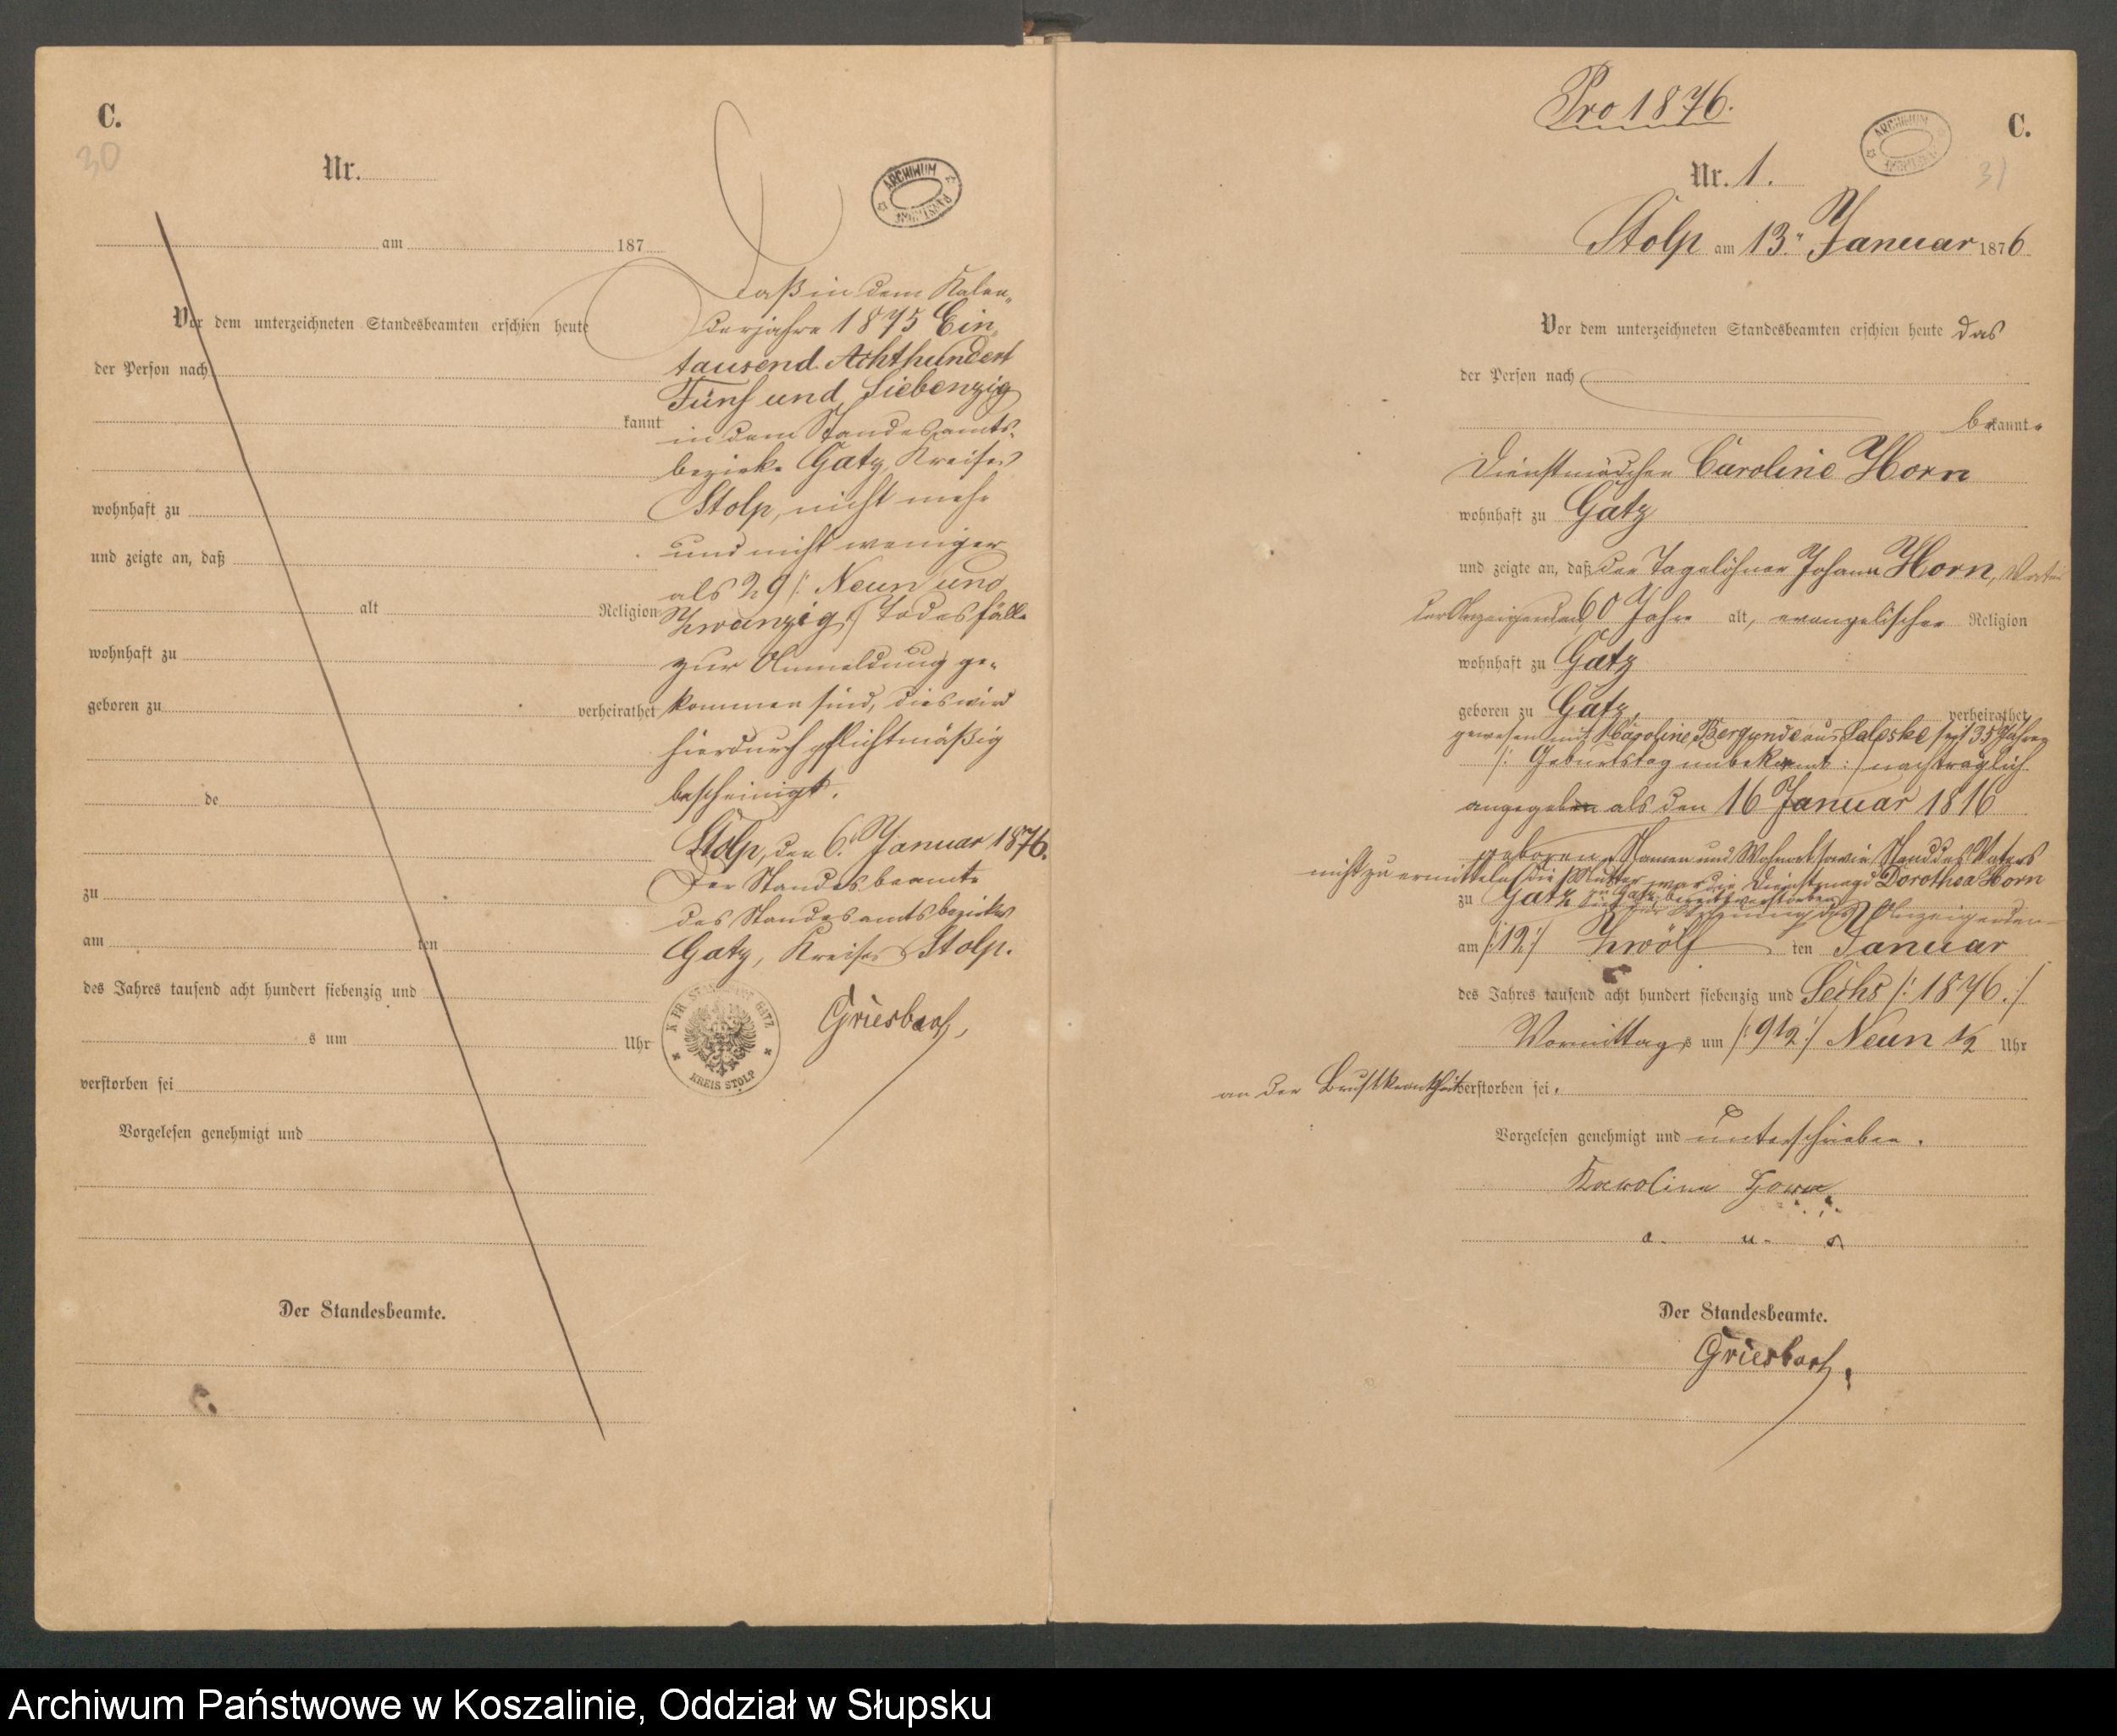 C.
30
Nr.
ARCHIWUM PAŃSTWOWE
am 187
Daß in dem Kalen-
Vor dem unterzeichneten Standesbeamten erschien heute
derjahre 1875 Ein
der Person nach
tausend Achthundert
Fünf und Siebenzig
kannt
in dem Standesamts-
bezirke Gatz, Kreises
wohnhaft zu
Stolp, nicht mehr
und zeigte an, daß
und nicht weniger
als 29 /: Neun und
alt Religion
Zwanzig :/ Todesfälle
wohnhaft zu
zur Anmeldung ge-
geboren zu verheirathet
kommen sind, dies wird
hierdurch pflichtmäßig
de
bescheinigt.
Stolp, den 6. Januar 1876.
Der Standesbeamte
zu
des Standesamtsbezirks
am ten
Gatz, Kreises Stolp.
des Jahres tausend acht hundert siebenzig und
K. PR. STANDESAMT GATZ
KREIS STOLP
Griesbach,
s um Uhr
verstorben sei
Vorgelesen genehmigt und
Der Standesbeamte.
Pro 1876.
C.
ARCHIWUM PAŃSTWOWE
Nr. 1.
31
Stolp am 13. Januar 1876
Vor dem unterzeichneten Standesbeamten erschien heute das
der Person nach
bekannte
Dienstmädchen Caroline Horn
wohnhaft zu Gatz
und zeigte an, daß der Tagelöhner Johann Horn, Vater
der Anzeigenden, 60 Jahre alt, evangelischer Religion
wohnhaft zu Gatz
geboren zu Gatz, verheirathet
gewesen mit Karoline aus Saleske seit 35 Jahren
/: Geburtstag unbekannt :/ nachträglich
angegeben als den 16 Januar 1816
geboren, Namen und Wohnort sowie Stand des Vaters
nicht zu ermitteln, die Mutter war die Dienstmagd Dorothea Horn
zu Gatz bereits verstorben
der Anzeigenden
am /:12:/ Zwölf ten Januar
des Jahres tausend acht hundert siebenzig und Sechs /: 1876. :/
Vormittags um /: 9 1/2 :/ Neun 1/2 Uhr
an der Brustkrankheit verstorben sei.
Vorgelesen genehmigt und unterschrieben.
Karoline Horn
a. u. s
Der Standesbeamte.
Griesbach,
Archiwum Państwowe w Koszalinie, Oddział w Słupsku